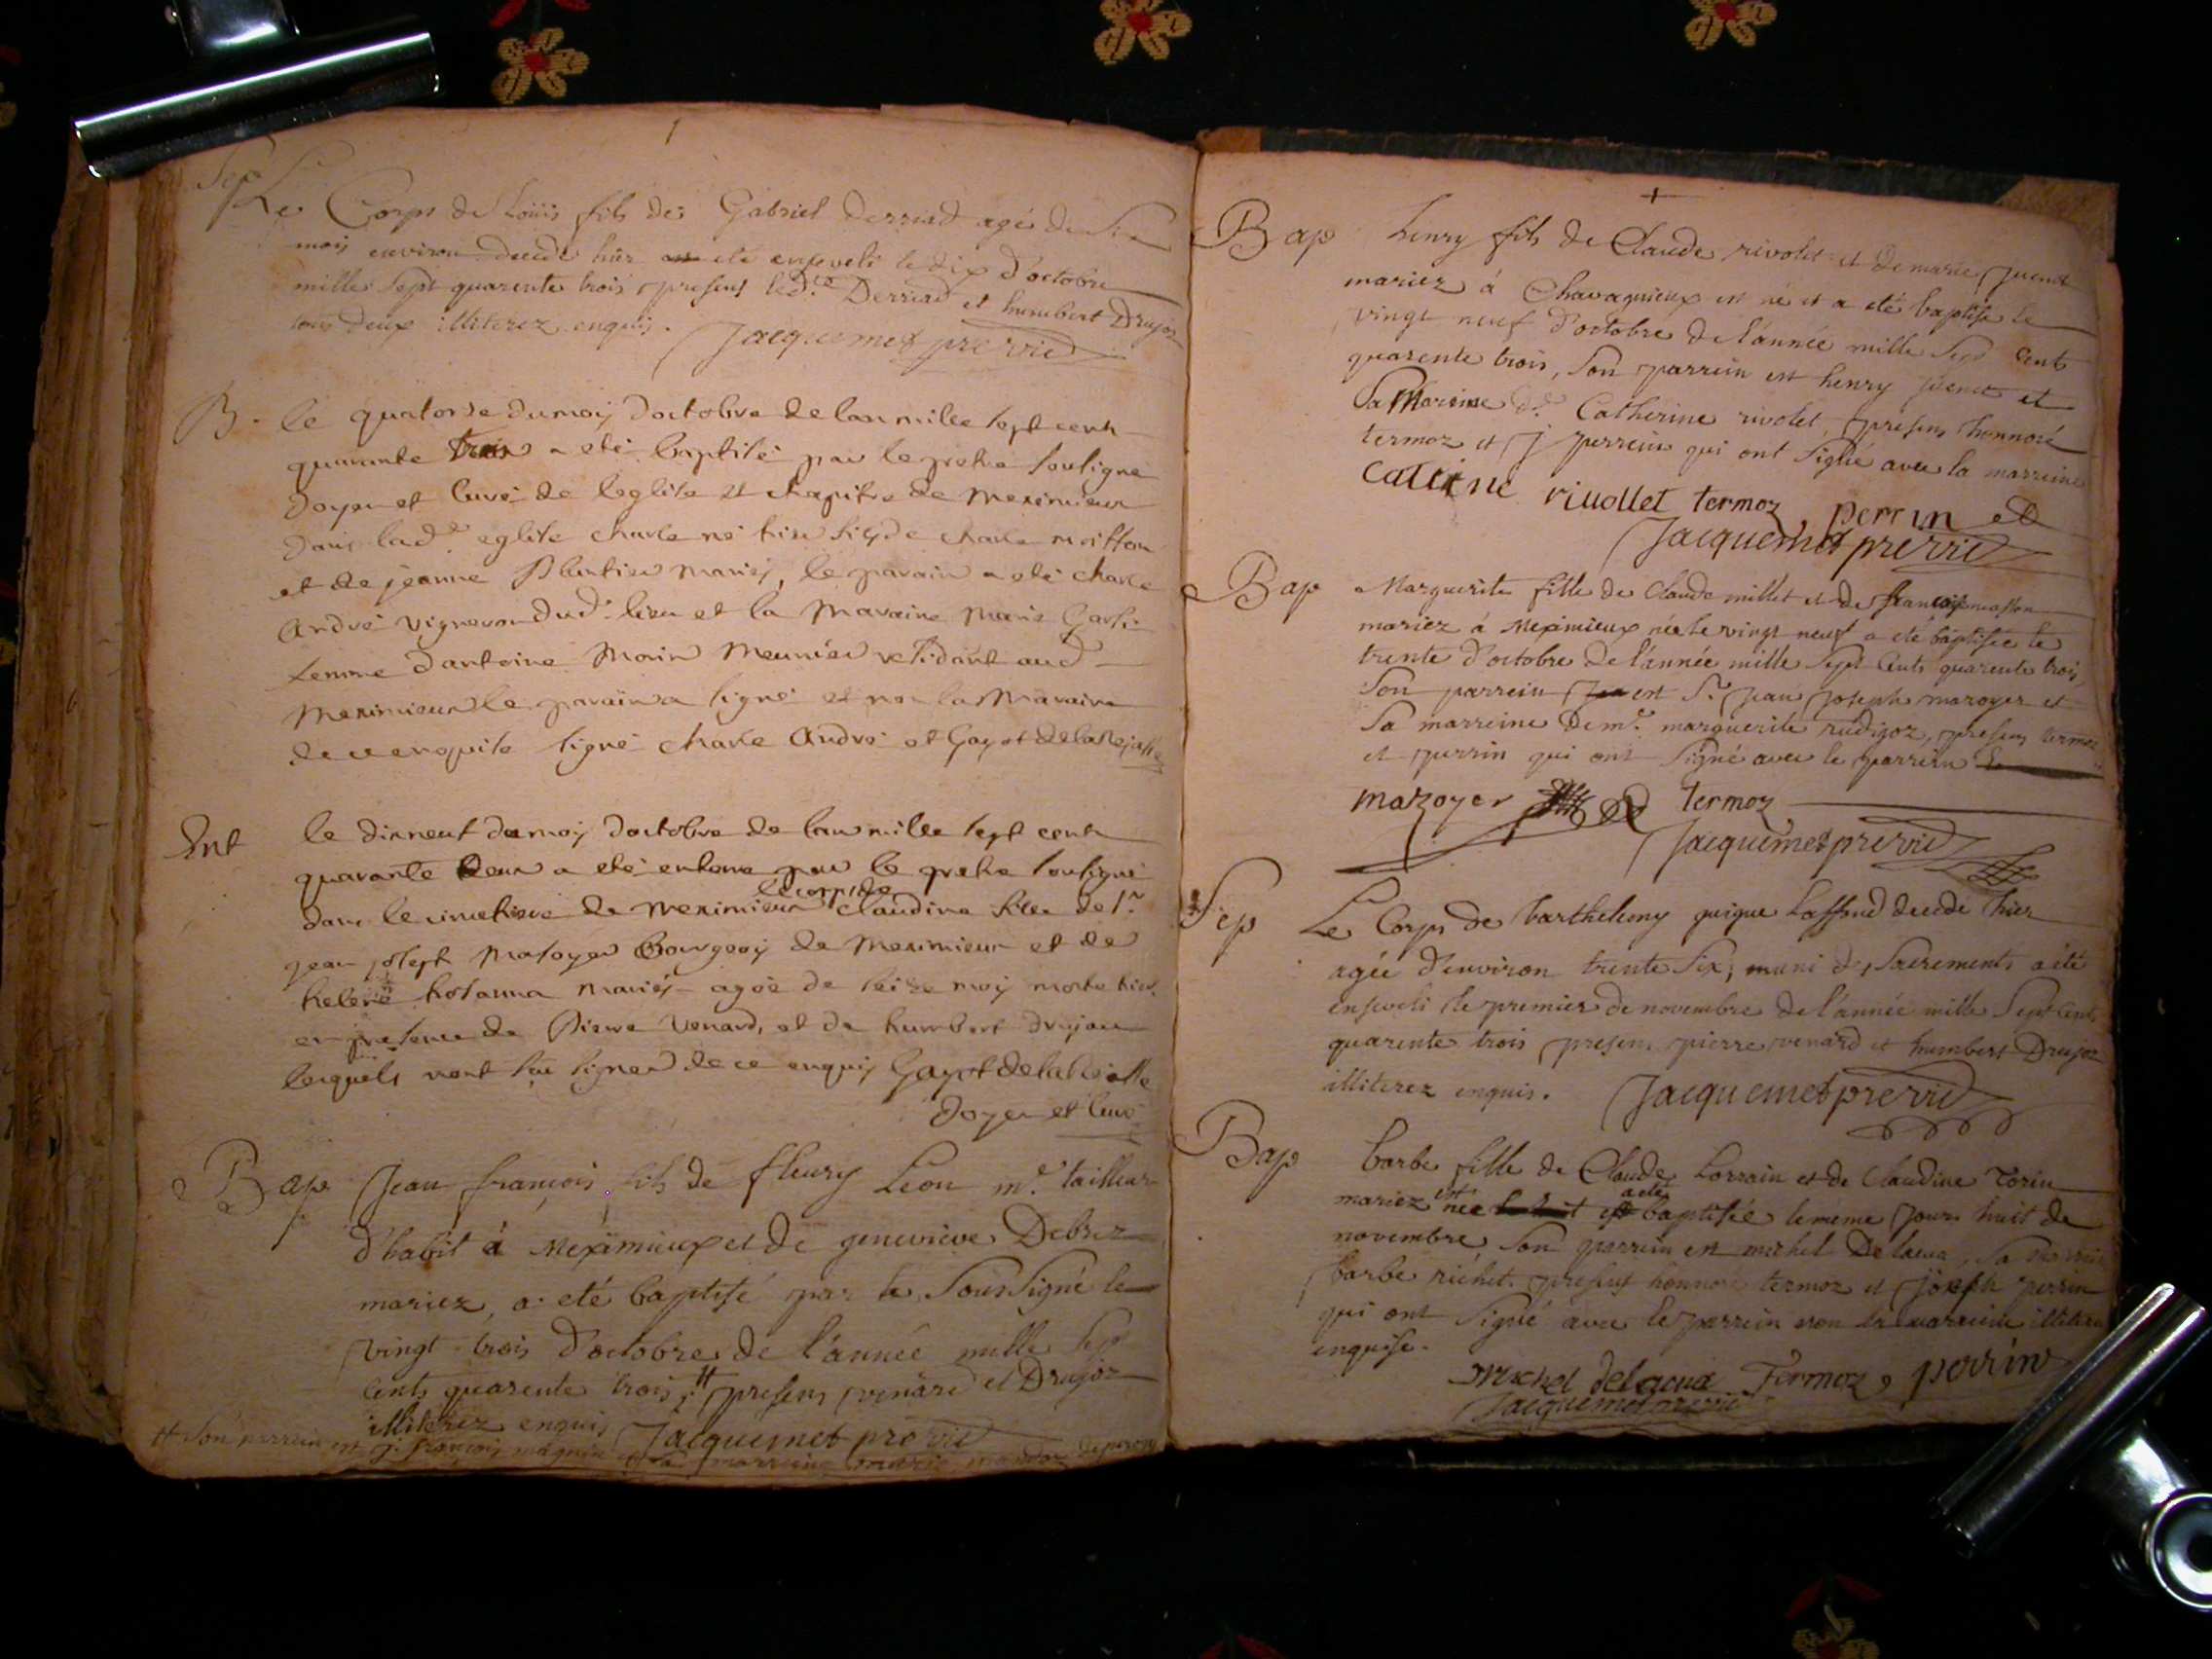 Sep
Le Corps de Loüis fils de Gabriel Derriad agé de six
mois environ decedé hier a eté enseveli le dix d'octobre
mille sept quarente trois presens led.t Derriad et humbert Drujoz
tous deux illiterez enquis. Jacquemet pre vic
B. le quatorse du moy doctobre de lan mille sept cent
quarante trois a eté baptisé par le pretre soussigné
doyen et curé de leglise et chapitre de meximieux
dans lad.e eglise charle né hier fils de charle moisson
et de jeanne Plantier mariés, le parain a eté charle
André vigneron dud. lieu et la maraine marie
femme dantoine morin meunier residant aud
meximieux le parain a signé et non la maraine
de ce enquise signé charle André et Gayot delaRejasse
Ent le dixneuf du moy doctobre de lan mille sept cent
quarante a eté enterré par le pretre soussigné
le corps de
dans le cimetiere de meximieux claudine fille de s.r
jean joseph masoyer Bourgeois de meximieux et de
helene hosanna mariés agée de seise moy morte hier
en presence de Pierre venard, et de humbert drujon
lesquels n'ont sçu signer de ce enquis Gayot delaRejasse
doyen et curé
Bap Jean françois fils de fleury Léon m.e tailleur
d'habit à Meximieux et de genevieve Debrez
mariez, a eté baptisé par le soussigné le
vingt-trois d'octobre de l'année mille sept
cents quarente trois, # presens venard et Drujoz
illiterez enquis Jacquemet pre vic
# son parrein est j. françois et sa marreine marie
Bap henry fils de Claude rivolet et de marie juenet
mariez à Chavagnieux est né et a eté baptisé le
vingt neuf d'octobre de l'année mille sept cents
quarente trois, son parrein est henry juenet et
sa Mareine d.e Catherine rivolet, presens honnoré
termoz et j perrein qui ont signé avec la marreine
Caterine riuollet termoz perrin et
Jacquemet pre vic
Bap Marguerite fille de Claude millet et de françoise masson
mariez à Meximieux née le vingt neuf a eté baptisée le
trente d'octobre de l'année mille sept cents quarente trois,
son parrein est S.r jean joseph mazoyer et
sa marreine dem.e marguerite rudigoz, presens termoz
et perrin qui ont signé avec le parrein
mazoyer termoz
Jacquemet pre vic
Sep Le Corps de barthelemy guigue Laffond decedé hier
agée d'environ trente six, muni des sacrements a été
enseveli le premier de novembre de l'année mille sept cents
quarente trois presens pierre venard et humbert Drujoz
illiterez enquis. Jacquemet pre vic
Bap barbe fille de Claude Lorrain et de Claudine Torin
est a eté
mariez née baptisée le meme jour huit de
novembre, son parrein est michel Delacua, sa marreine
barbe richet. presens honnoré termoz et joseph perrin
qui ont signé avec le parrein non la marreine illiterée
enquise.
Michel delacua Termoz, perrin
Jacquemet pre vic